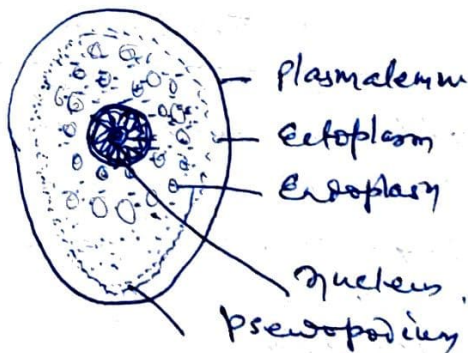 Plasmalemm
Ectoplasm
Endoplasm
nucleus
Pseudopodium